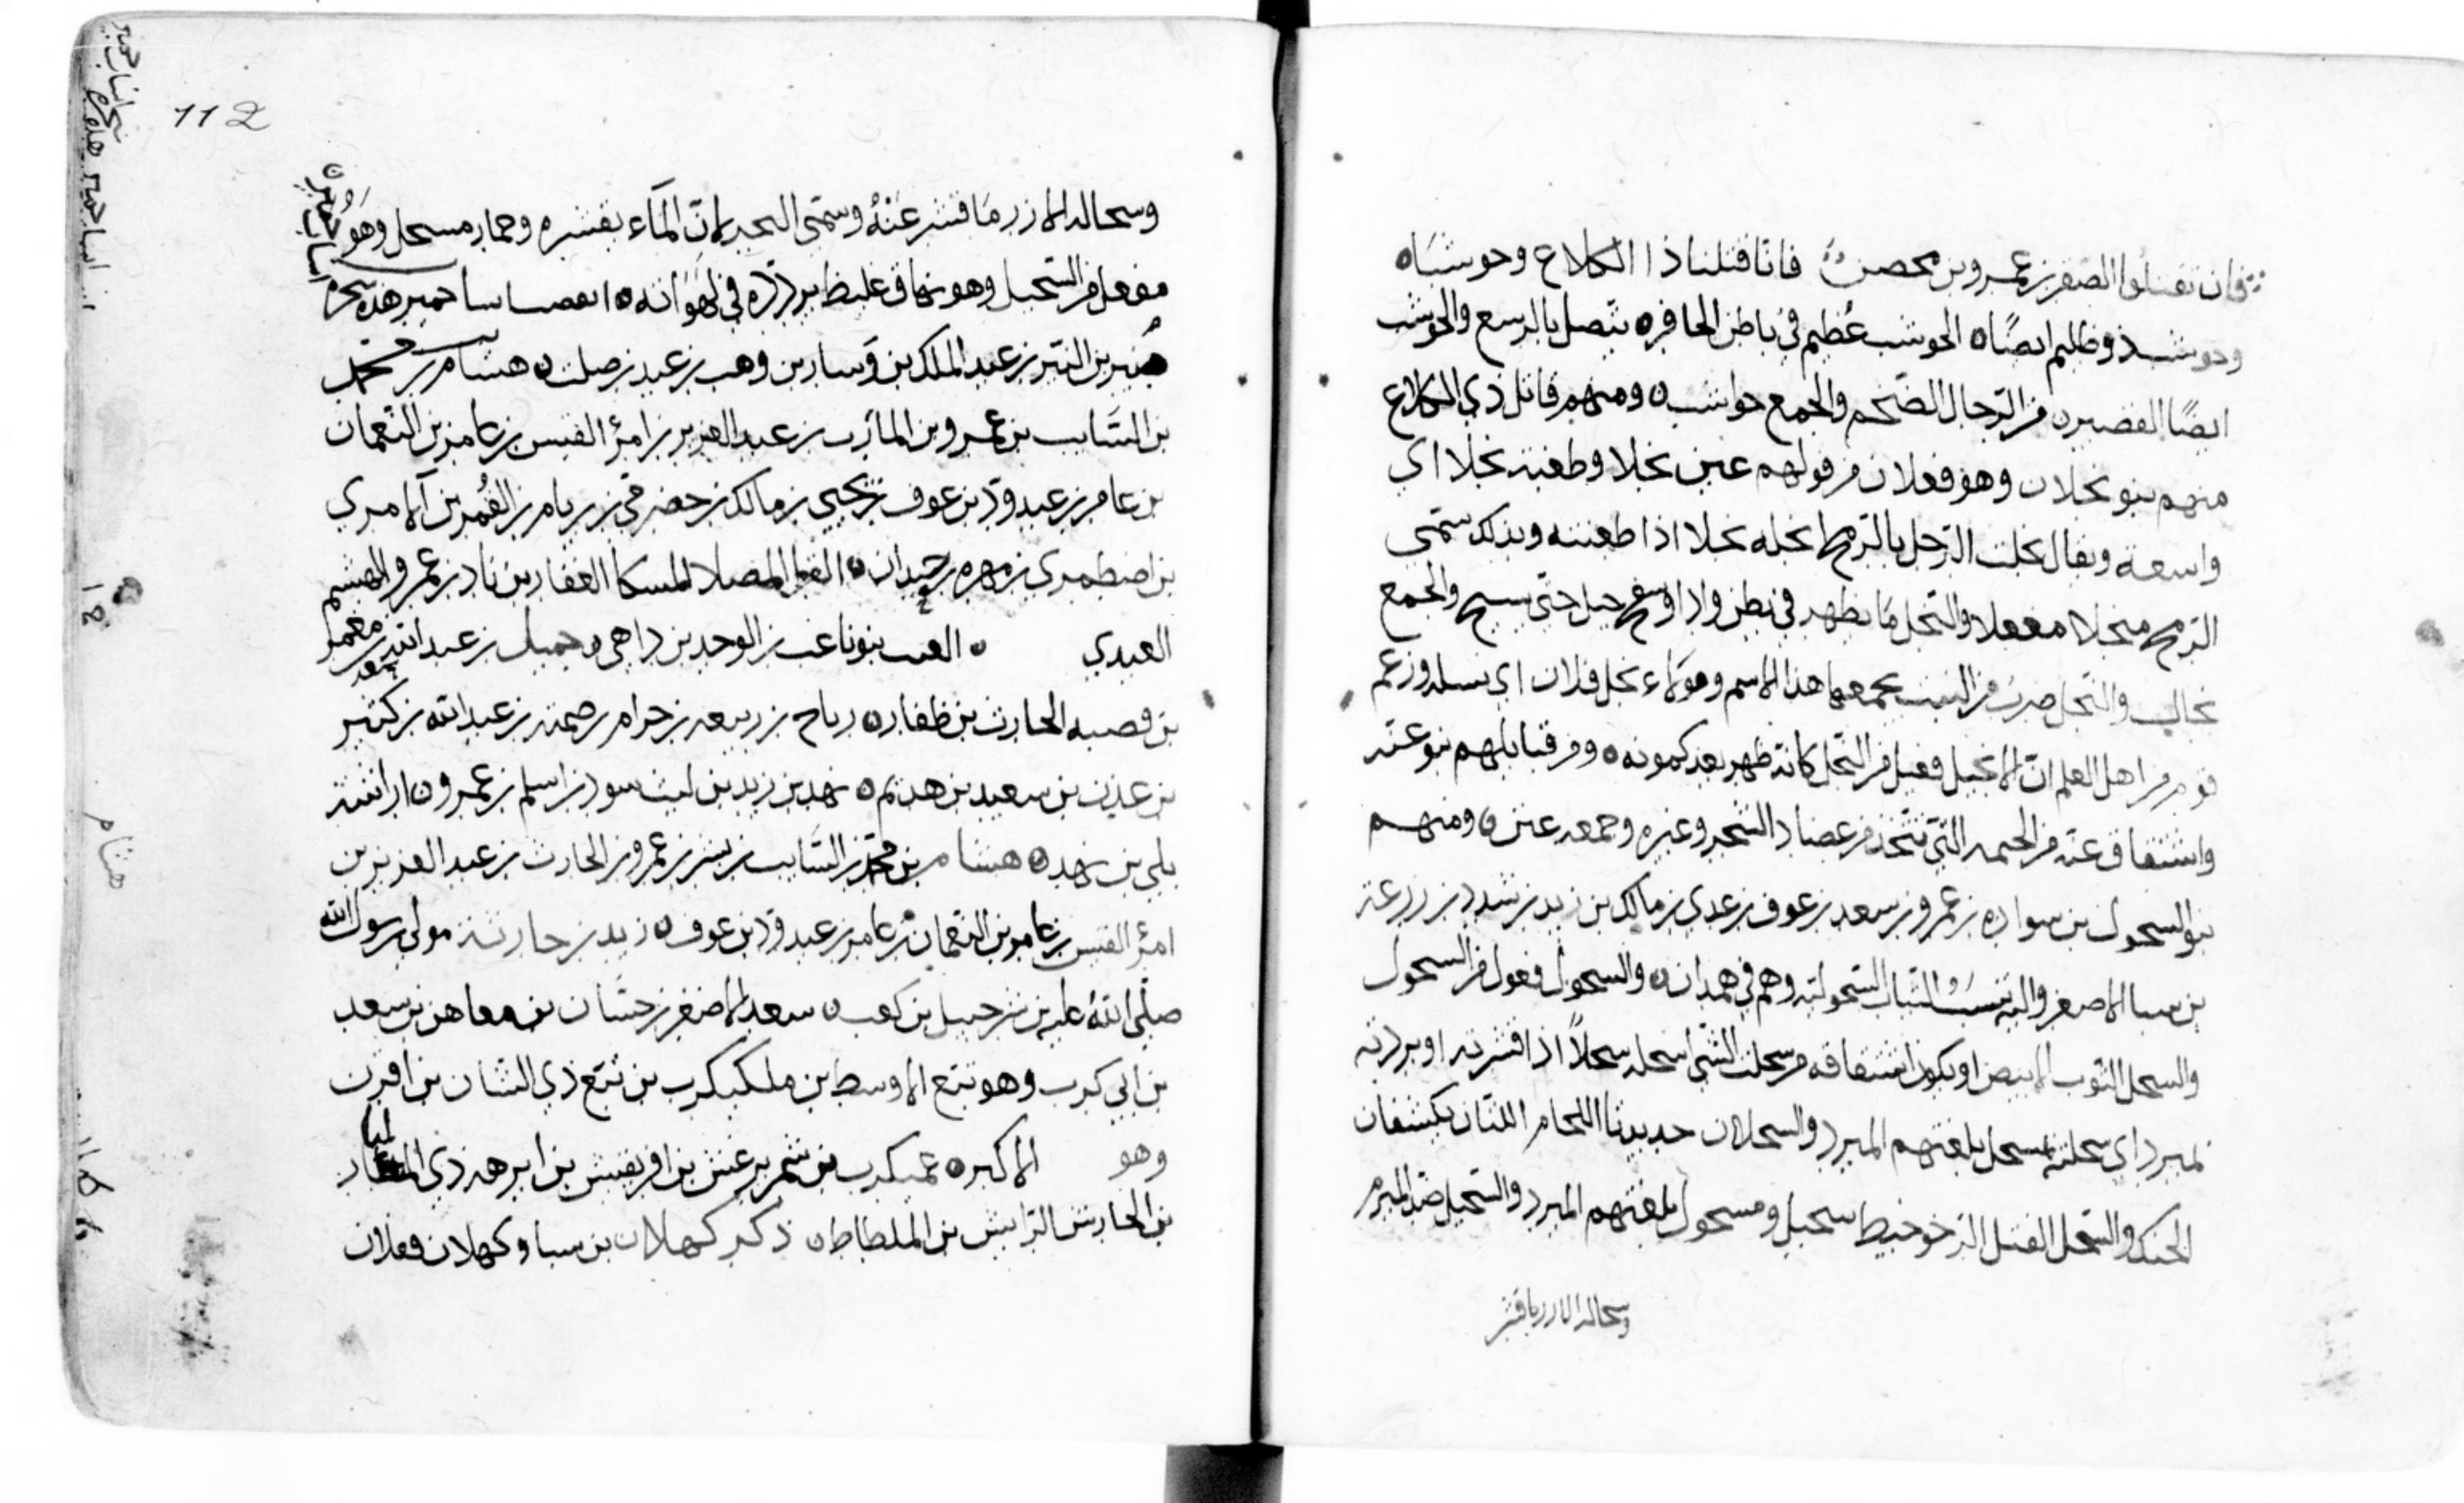 فان تقتلوا الصقر بن عمرو بن محصن فانا قتلنا ذا الكلاع وحوشبا ه
وحوشب ذو ظليم ايضا ه الحوشب عظيم في باطن الحافر ه يتصل بالرسغ والحوشب
ايضا القصير ن من الرجال الضخم والجمع حواشب ه ومنهم قاتل ذي الكلاع
منهم بنو نجلان وهو فعلان من قولهم عين نجلا وطعنة نجلا اي
واسعة ويقال نجلت الرجل بالرمح انجله نجلا اذا طعنته وبذلك سمي
الرمح منجلا مفعلا والنجل ما يظهر في بطن واد او سفح جبل حتى يسيح والجمع
نجال والنجل ضرب من النبت يجمعهما هذا الاسم وهولاء نجل فلان اي نسله وزعم
قوم من اهل العلم ان الانجيل فعيل من النجل كانه ظهر بعد كمونه ه ومن قبايلهم بنو عنه
واشتقاق عنه من الخيمه التي تتخذ من عضاد الشجر وغيره وجمعه عنن ه ومنهم
بنو السحول بن سواده بن عمرو بن سعد بن عوف بن عدي بن مالك بن زيد بن شدد بن زرعة
بن سبا الاصغر واليه تنسب الثياب السحولية وهم في همدان ه والسحول فعول من السحول
والسحل الثوب الابيض او يكون اشتقاقه من سحلت الشي اسحله سحلا اذا قشرته او بردته
بمبرد اي سحلته بمسحل بلغتهم المبرد والسحلان حديدتا اللجام اللتان يكتنفان
الحنك والسحل الفتل الرخو خيط سحيل ومسحول بلغتهم المبرد والسحيل ضد المبرم
وسحاله الارز ما قشر
112
وسحاله الارز ما قشر عنه وسمي البحر لان الماء يقشره وحمار مسحل وهو
مفعل من السحيل وهو نهاق غليظ يردده في لهواته ه حمير هذه شجره
بن النير بن عبد الملك بن وسار بن وهب بن عبد بن صلت ه هشام بن محمد
بن السايب بن عمرو بن عبد العزيز بن امرؤ القيس بن عامر بن النعمان
بن عامر بن عبد ود بن عوف بن يحيى بن مالك بن حضرمي بن ريام بن القمر بن الامري
بن اضطمري بن مهره بن حيدان ه
العبدي ه بنو ناعب بن الوحد بن داهي و جميل بن عبد الله بن معمر
بن الحارث بن ظفار ه رياح بن ربيعه بن حرام بن ضمنه بن عبد الله بن كثير
بن عذرة بن سعيد بن هذيم ه نهد بن زيد بن ليث بن سود بن اسلم بن عمرو ه اراشة
بلي بن نهد ه هشام بن محمد بن السايب بن بشر بن عمرو بن الحارث بن عبد العزيز بن
امرؤ القيس بن عامر بن النعمان بن عامر بن عبد ود بن عوف ه زيد بن حارثة مولى رسول الله
صلى الله عليه بن شرحبيل بن كعب ه سعد الاصغر بن حسان بن معاهر بن سعد
بن ابي كرب وهو تبع الاوسط بن ملكيكرب بن تبع ذي الشان بن اقرن
وهو الاكبر ه عميكرب بن شمر يرعش بن افريقيش بن ابرهه ذي المنار
بن الحارث الرايش بن الملطاط ه ذكر كهلان بن سبا وكهلان فعلان
هشام